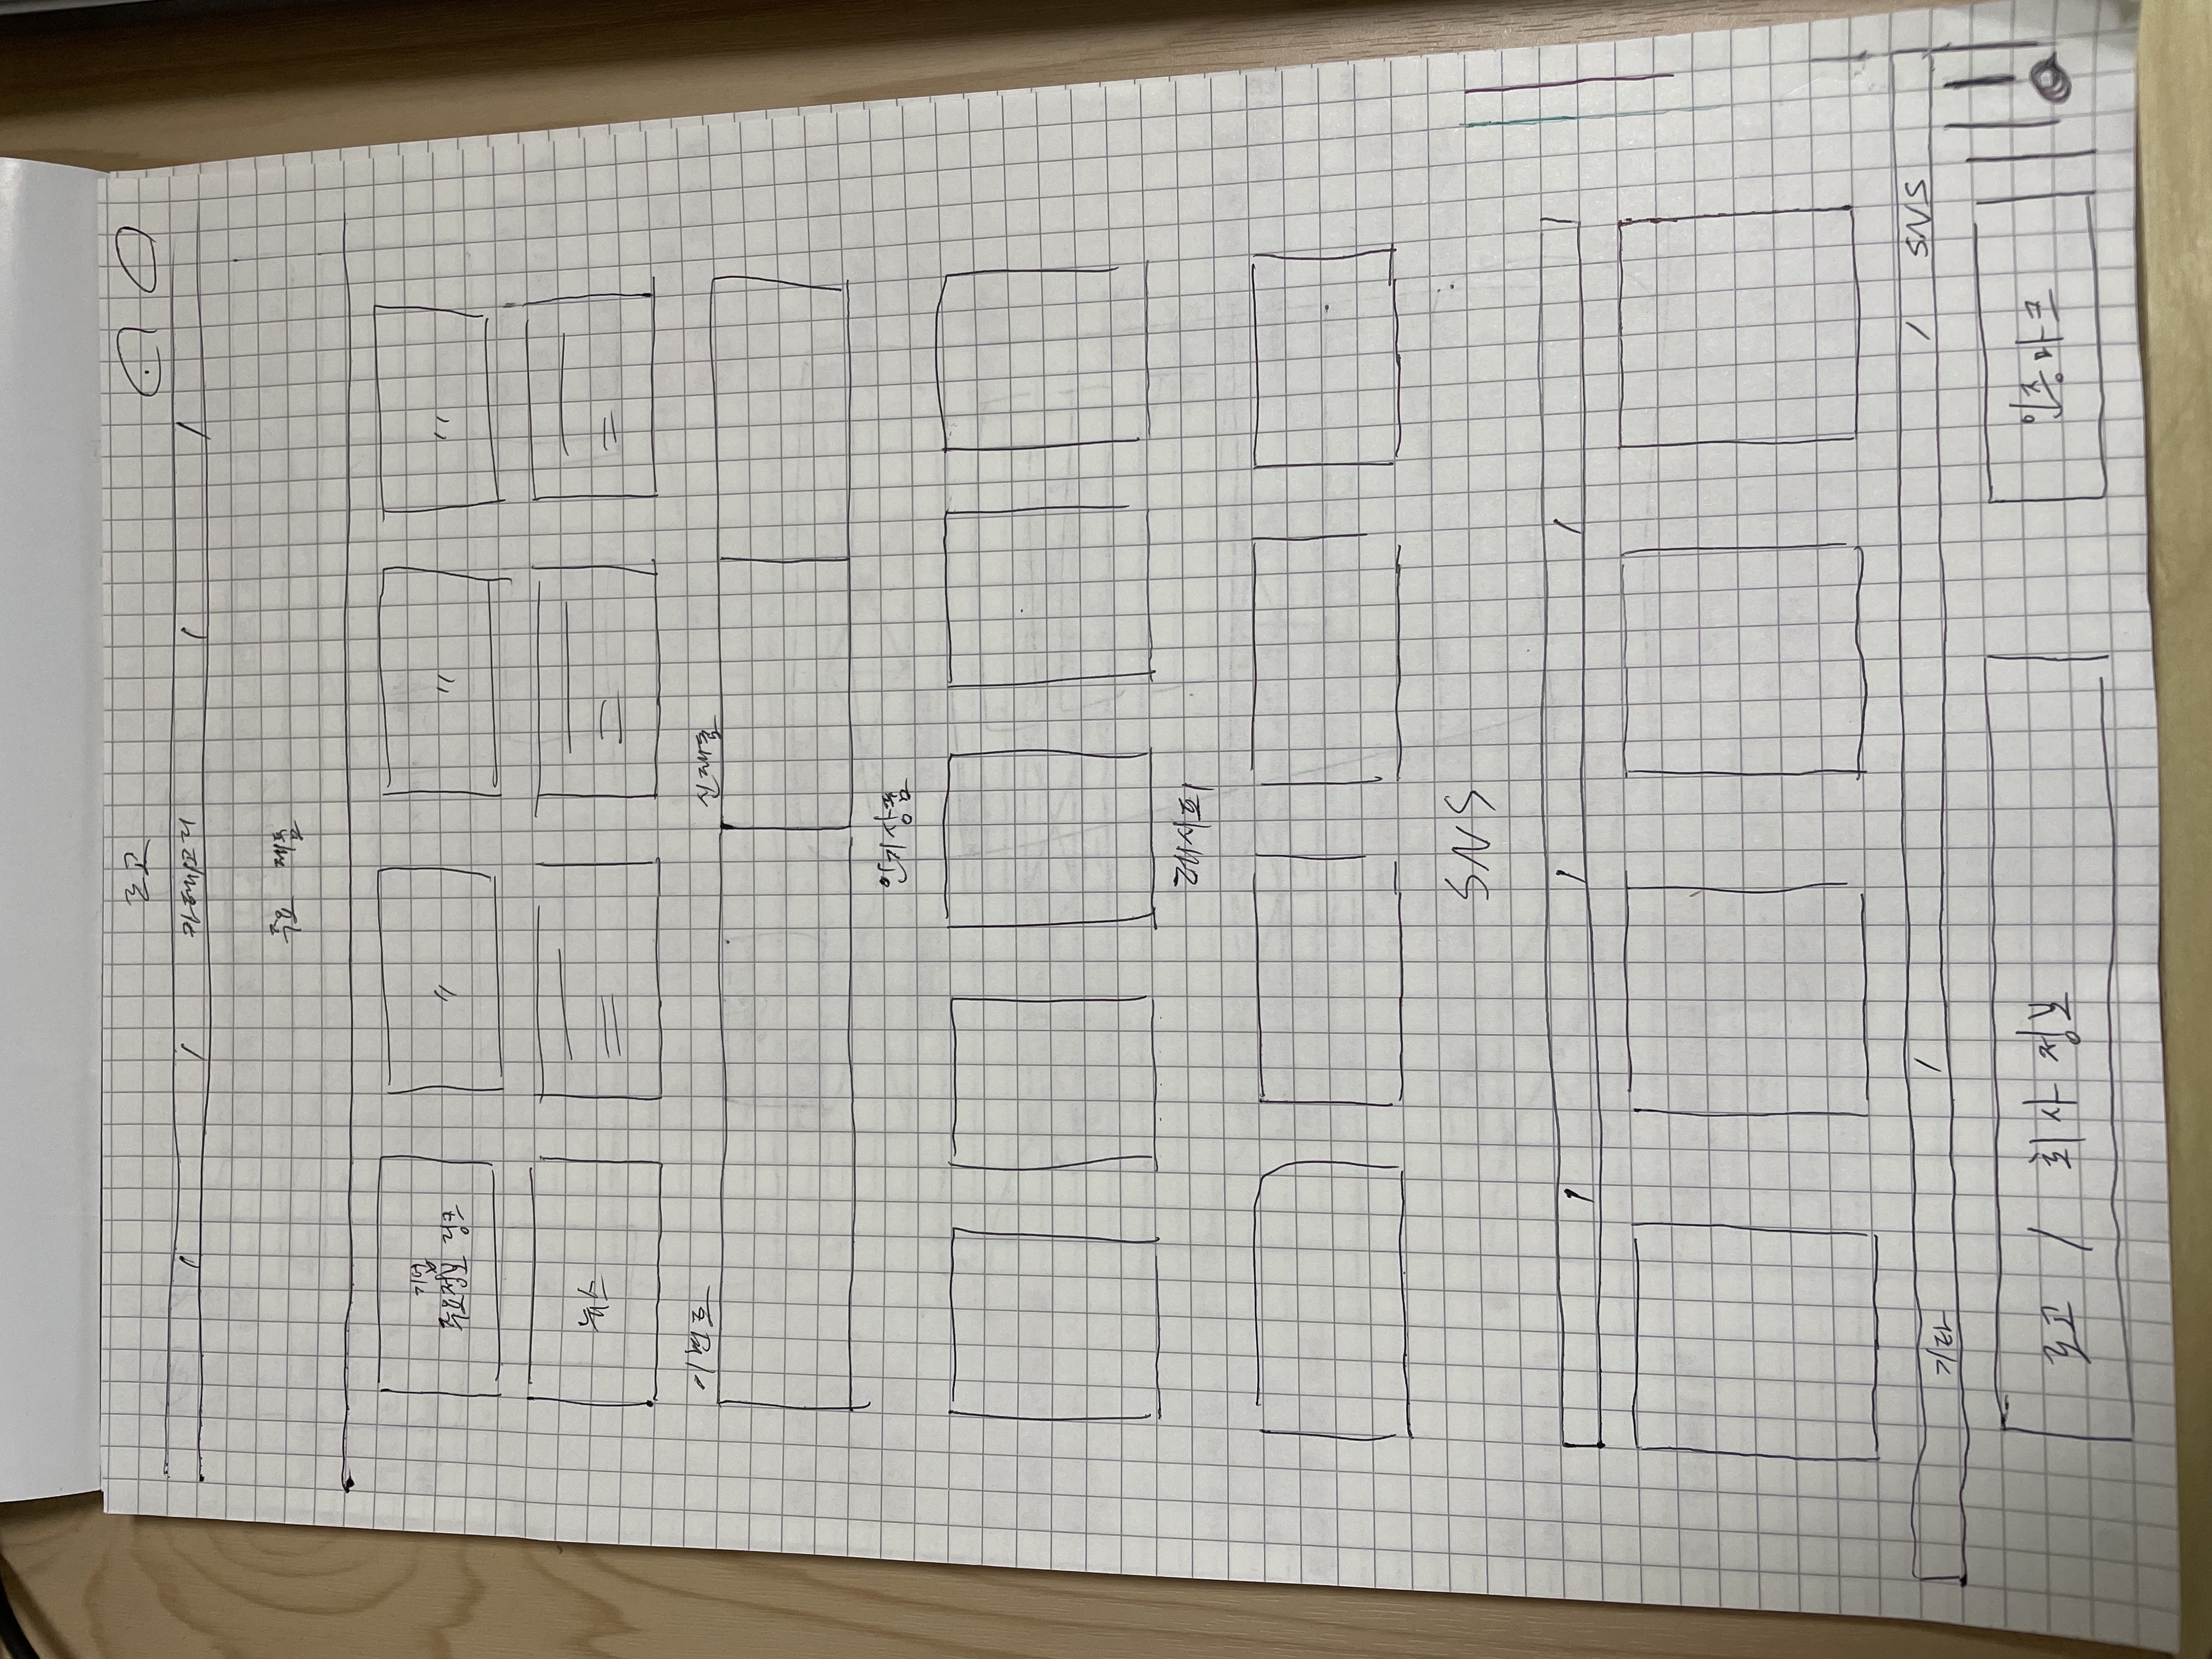 로고
/ / 카테고리 / /
주요 제품
기업
주요정보 링크
〃 〃 〃
뉴스
이벤트 신제품
인기상품
레시피
SNS
/ / /
기타 / / SNS
로고 / 회사 정보 인증마크